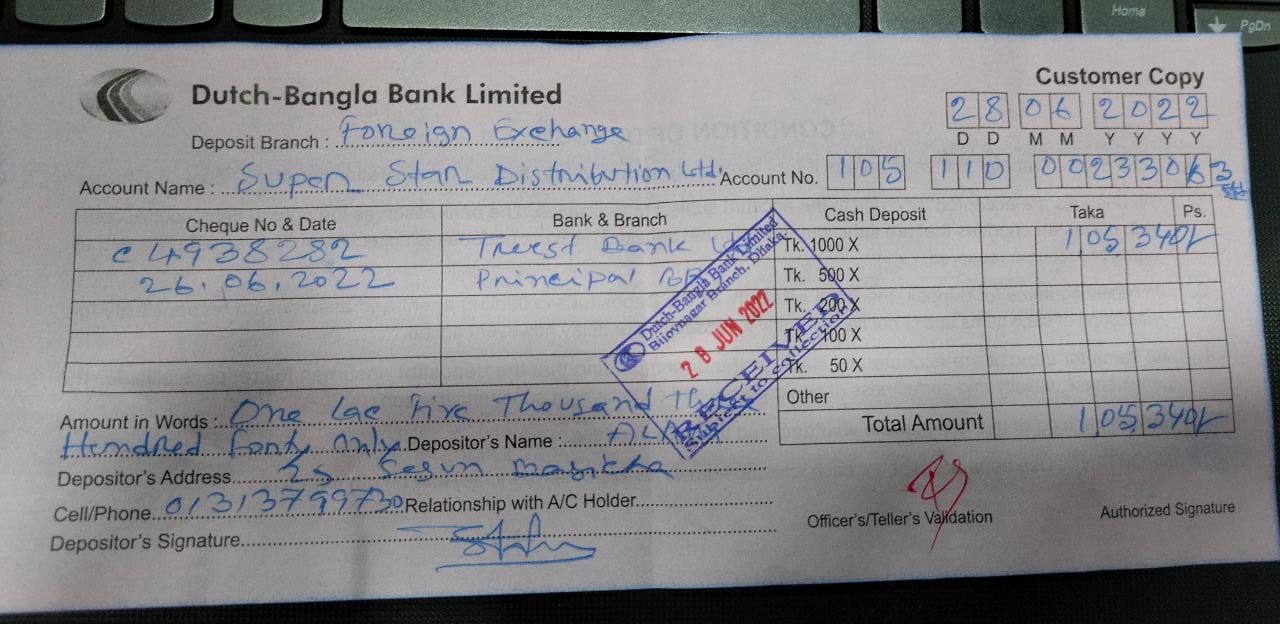 Home
PgDn
Customer Copy
Dutch-Bangla Bank Limited
28 06 2022
D D M M Y Y Y Y
Deposit Branch : Foreign Exchange
Account Name : Super Star Distribution Ltd. Account No. 105 110 0023306 3
Cheque No & Date Bank & Branch Cash Deposit Taka Ps.
c 4938282 Trust Bank Tk. 1000 X 105 340/-
26.06.2022 Principal BR Tk. 500 X
Tk. 200 X
Tk. 100 X
Tk. 50 X
Other
Total Amount 105 340/-
Dutch-Bangla Bank Limited
Bijoynagar Branch, Dhaka.
28 JUN 2022
RECEIVED
Subject to Collection
Amount in Words : One Lac Five Thousand
Hundred Forty Only. Depositor's Name :
Depositor's Address 25 Segun
Cell/Phone 01313799730 Relationship with A/C Holder
Officer's/Teller's Validation Authorized Signature
Depositor's Signature